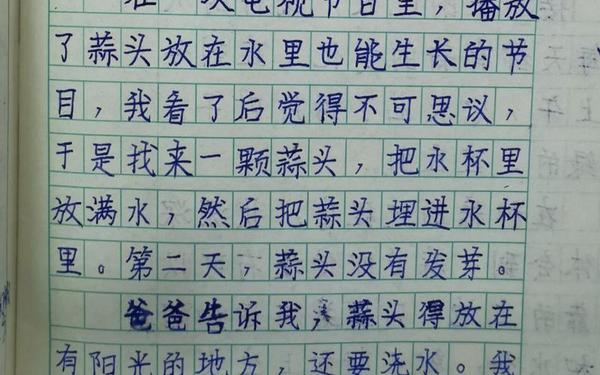 在一次电视节目里，播放
了蒜头放在水里也能生长的节
目，我看了后觉得不可思议，
于是找来一颗蒜头，把水杯里
放满水，然后把蒜头埋进水杯
里。第二天，蒜头没有发芽。
爸爸告诉我，蒜头得放在
有阳光的地方，还要浇水。我